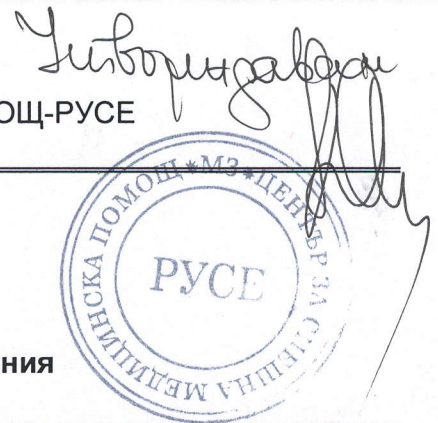 Утвърждавам
ОЩ-РУСЕ
*МЗ*ЦЕНТЪР ЗА СПЕШНА МЕДИЦИНСКА ПОМОЩ
РУСЕ
ния